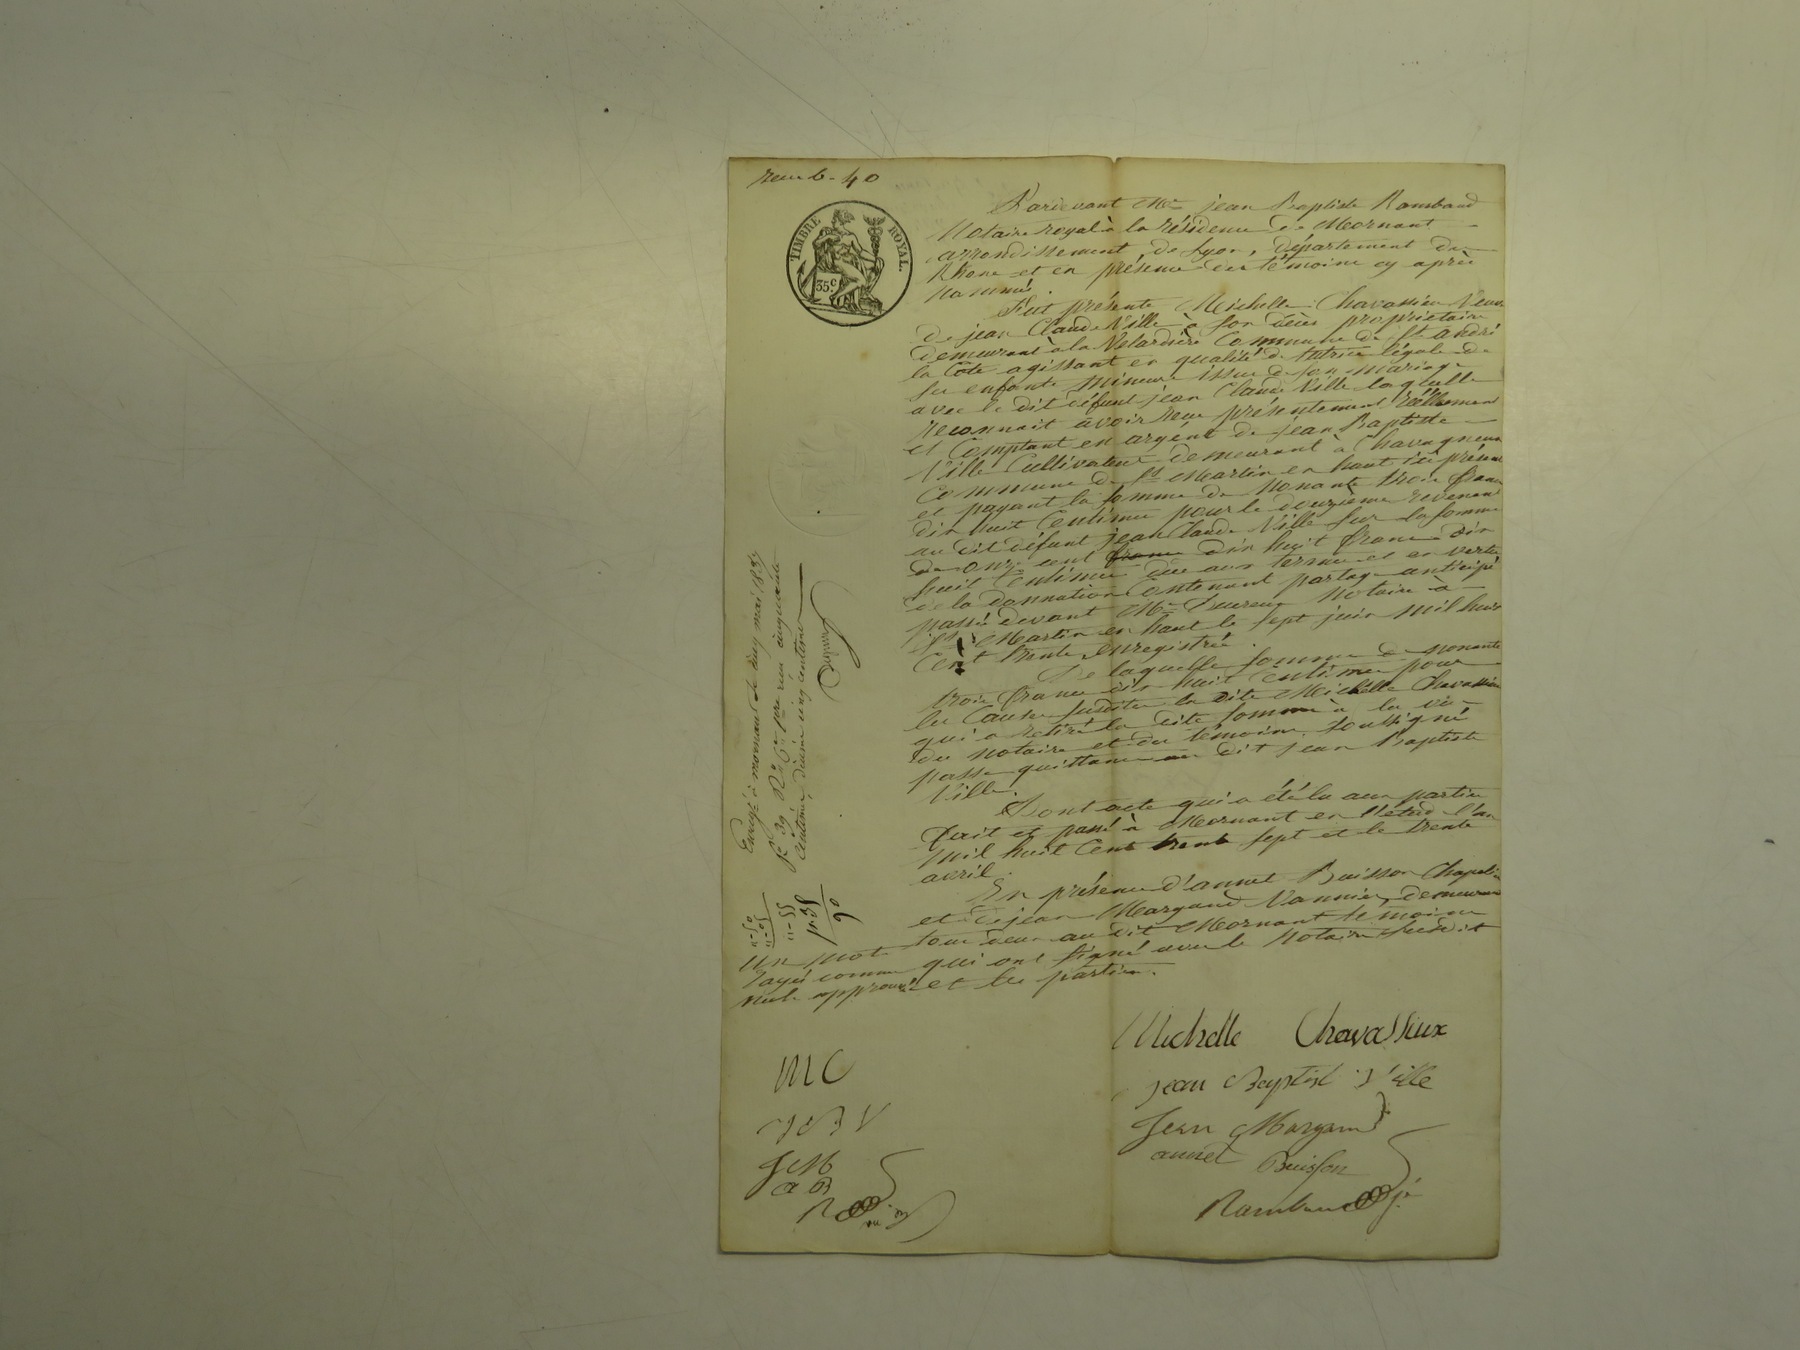 recu 6-40
TIMBRE ROYAL.
35 c
Pardevant Me jean Baptiste Rambaud
Notaire royal à la résidence de Mornant
arrondissement de Lyon, département du
Rhone et en présence des témoins cy après
nommés.
Fut présente Michelle Chavassieu Veuve
de jean Claude Ville à son décès propriétaire
demeurant à la Velardière Commune de St andré
la Côte agissant en qualité de tutrice légale de
ses enfants mineurs issus de son mariage
avec le dit défunt jean Claude Ville laquelle
reconnait avoir recu présentement réellement
et Comptant en argent de jean Baptiste
Ville Cultivateur demeurant à Chavagneux
Commune de St Martin en haut ici présent
et payant la somme de Nonante trois francs
dix huit Centimes pour le douzième revenant
au dit défunt jean Claude Ville sur la somme
de onze cent francs dix huit francs dix
huit Centimes due aux termes et en vertu
de la donnation Contenant partage anticipé
passé devant Me Notaire à
St Martin en haut le sept juin mil huit
Cent trente enregistrée.
De laquelle somme de nonante
trois francs dix huit Centimes pour
les Causes susdites la dite Michelle Chavassieu
qui a retiré la dite somme à la vüe
du notaire et des témoins soussignés
passe quittance au dit jean Baptiste
Ville.
Dont acte qui a été lu aux parties
Fait et passé à Mornant en l'étude l'an
mil huit Cent trente sept et le trente
avril.
En présence d'annet Buisson Chapelier
et de jean Margand Vannier, demeurant
tous deux au dit Mornant témoins
qui ont signé avec le Notaire susdit
et les parties.
Un mot
rayé comme
nul approuvé
Enregé à mornant le cinq mai 1837
fo 39 Ro Ce 1re recu cinquante
centimes, décime cinq centimes
"-50
"-05
"-55
1-35
90
Michelle Chavassieux
jean Baptist Ville
Jean Margand
annet Buisson
Rambaud
MC
JBV
JM
aB
R